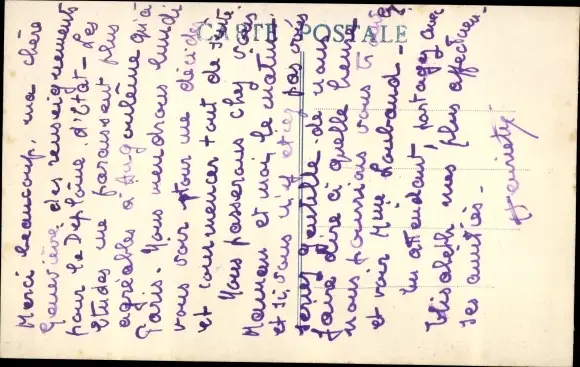 CARTE POSTALE
Merci beaucoup, ma chère
Geneviève, des renseignements
pour le Diplôme d'Etat - Les
études me paraissent plus
agréables à Angoulême qu'à
Paris. Nous viendrons lundi
vous voir pour me décider
et commencer tout de suite.
Nous passerons chez vous
Maman et moi, le matin
et si vous n'y étiez pas vous
seriez gentille de nous
faire dire à quelle heure
nous pourrions vous
et voir Mme Loubaud -
En attendant, partagez avec
Elisabeth mes plus affectueu-
ses amitiés -
Henriette